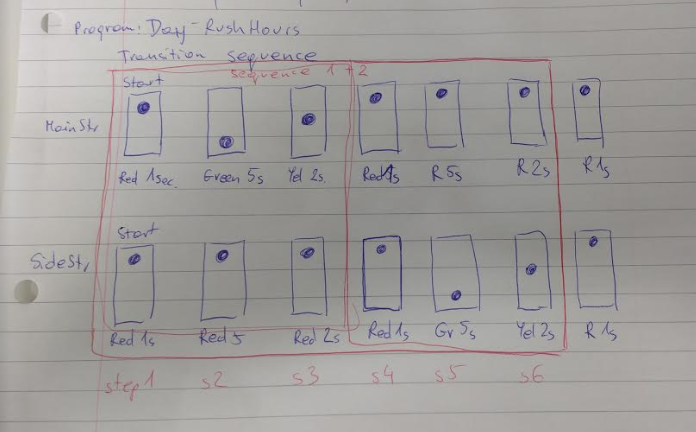 Program: Day - RushHours
Transition sequence
sequence 1 + 2
Start
MainStr
Red 1sec. Green 5s Yel 2s. Red 1s R 5s R 2s R 1s
Start
SideStr
Red 1s Red 5 Red 2s Red 1s Gr 5s Yel 2s R 1s
step1 s2 s3 s4 s5 s6